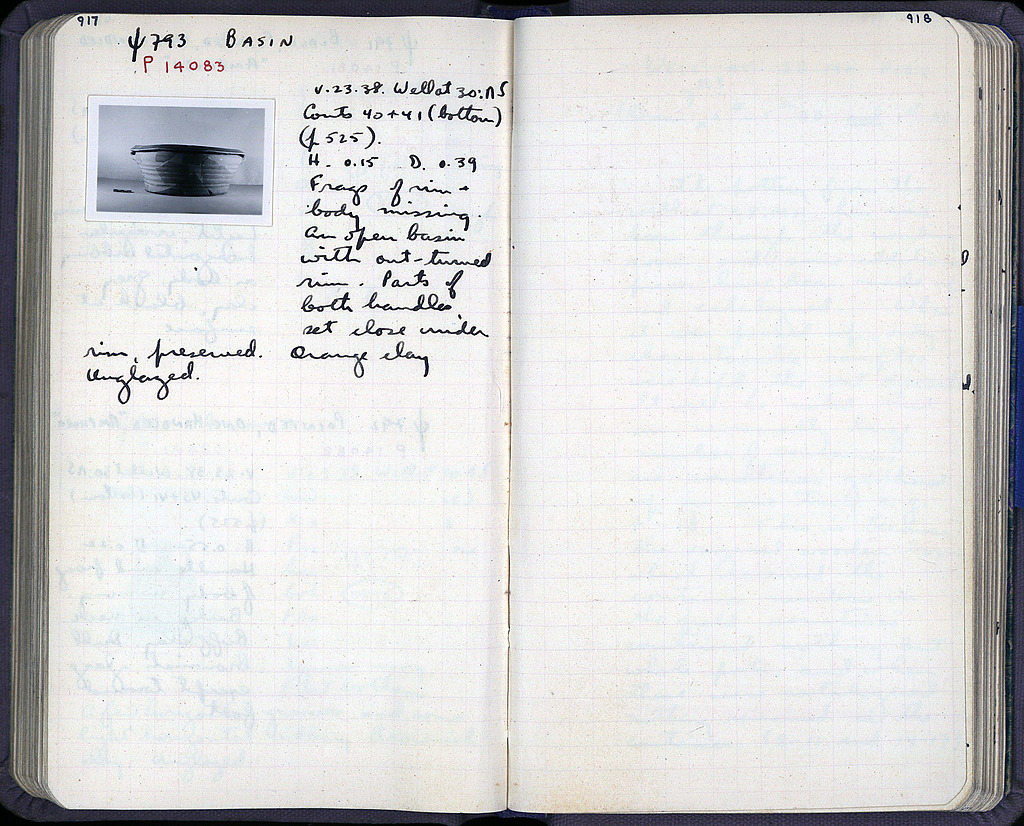 917
918
ψ 793 BASIN
P 14083
V.23.38. Well at 30:ΛΣ
Conts 40+41 (bottom)
(p. 525).
H. 0.15 D. 0.39
Frags of rim +
body missing.
An open basin
with out-turned
rim. Parts of
both handles,
set close under
rim, preserved. Orange clay
Unglazed.